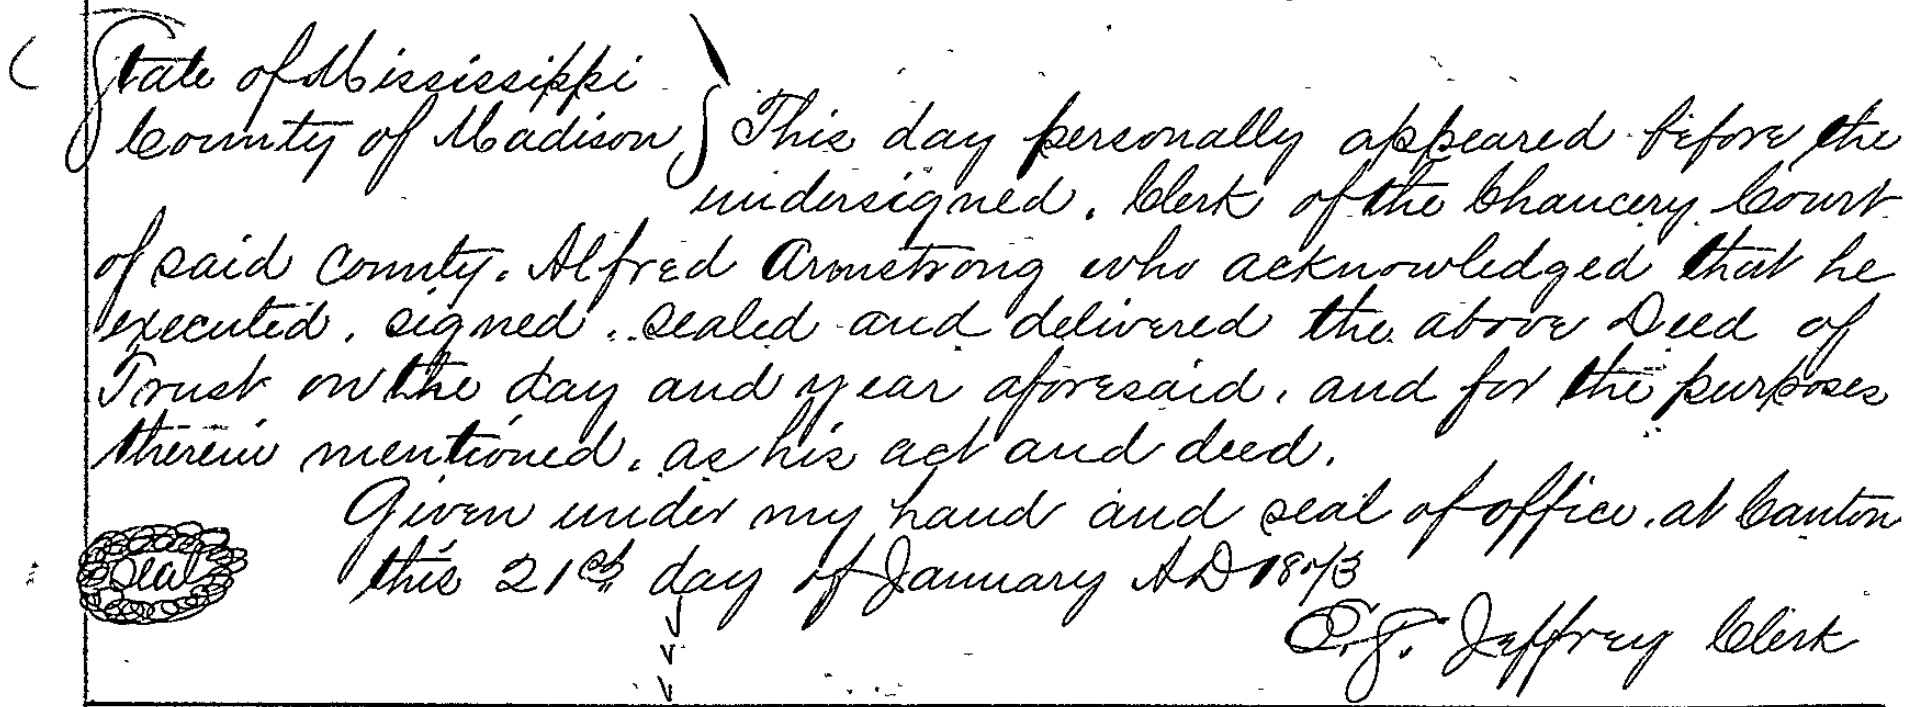 State of Mississippi
County of Madison } This day personally appeared before the
undersigned, Clerk of the Chancery Court
of said County, Alfred Armstrong who acknowledged that he
executed, signed, sealed and delivered the above Deed of
Trust on the day and year aforesaid, and for the purposes
therein mentioned, as his act and deed.
Given under my hand and seal of office, at Canton
Seal this 21st day of January AD 1873
Jeffrey Clerk